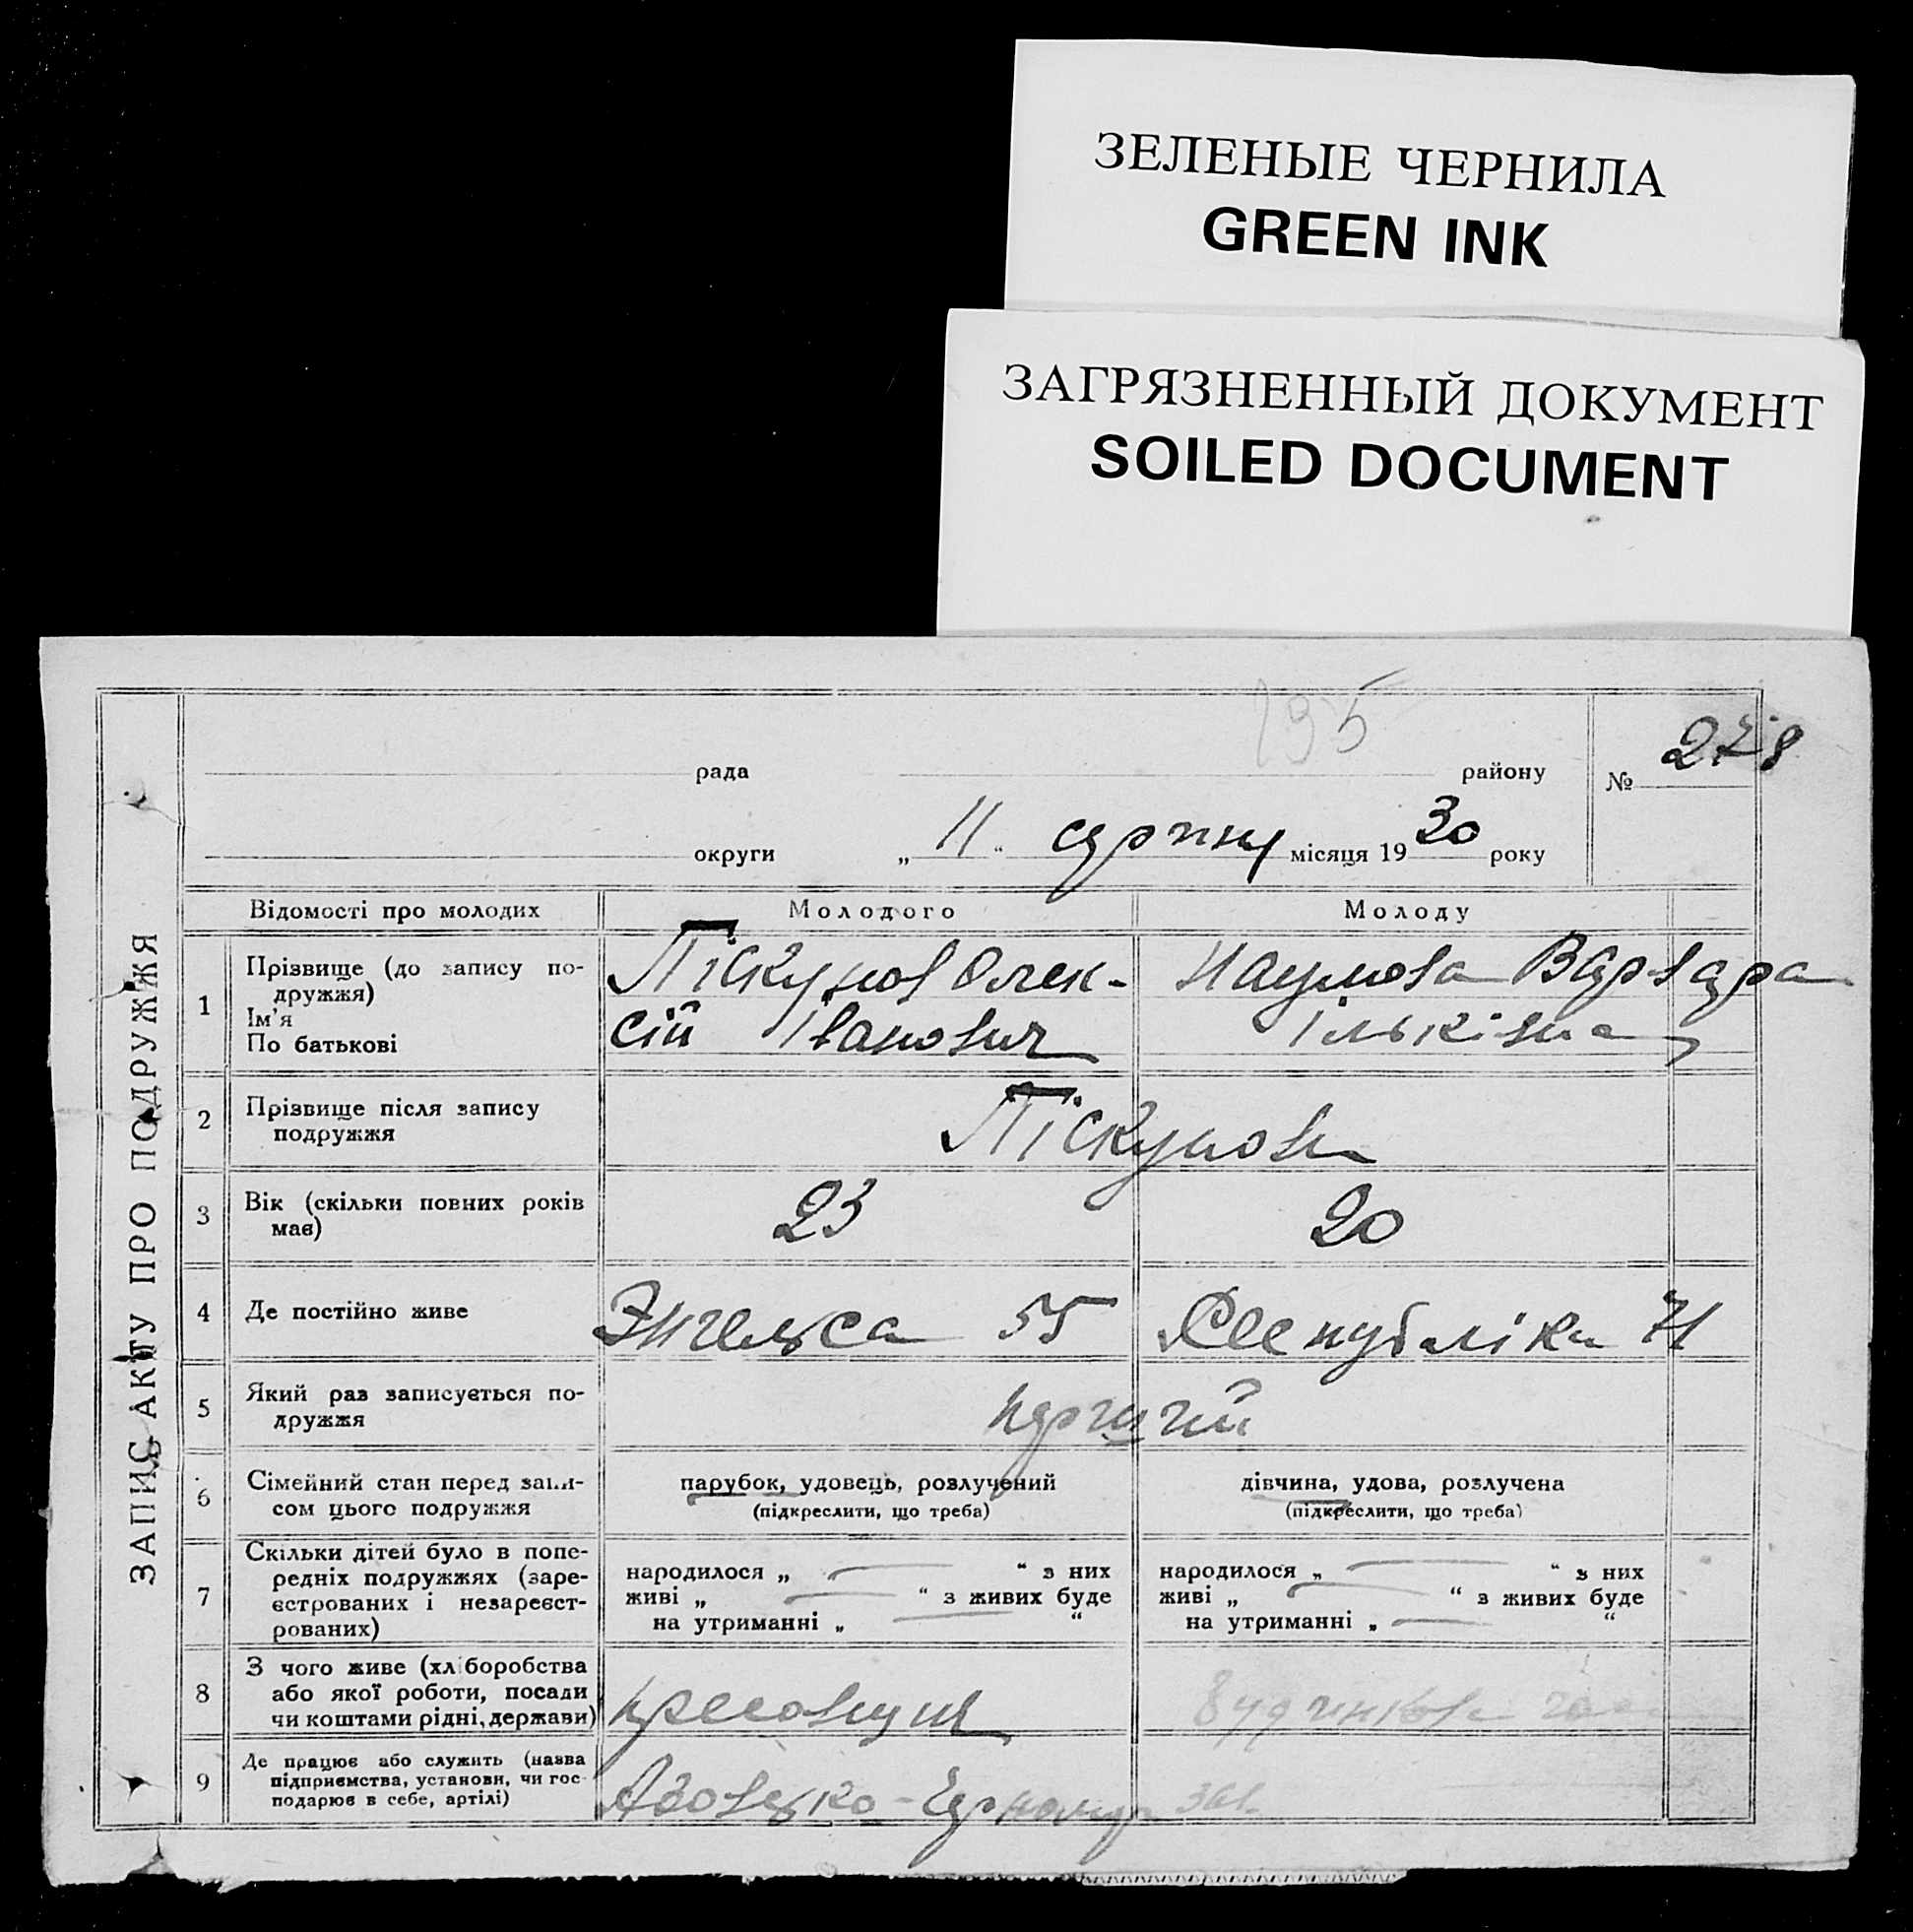 ЗЕЛЕНЫЕ ЧЕРНИЛА
GREEN INK
ЗАГРЯЗНЕННЫЙ ДОКУМЕНТ
SOILED DOCUMENT
195
рада района № 278
округи „ 11 “ серпня місяця 1930 року
ЗАПИС АКТУ ПРО ПОДРУЖЖЯ
Відомості про молодих Молодого Молоду
1 Прізвище (до запису по-
дружжя)
Ім'я
По батькові
Піскунов Олек-
сій Іванович
Наумова Варвара
Ільківна
2 Прізвище після запису
подружжя
Піскунови
3 Вік (скільки повних років
має)
23 20
4 Де постійно живе
Энгельса 55 Республіки 71
5 Який раз записується по-
дружжя
перший
6 Сімейний стан перед запи-
сом цього подружжя
парубок, удовець, розлучений
(підкреслити, що треба)
дівчина, удова, розлучена
(підкреслити, що треба)
7 Скільки дітей було в попе-
редніх подружжях (заре-
єстрованих і незареєст-
рованих)
народилося „ — “ з них
живі „ — “ з живих буде
на утриманні „ — “
народилося „ — “ з них
живі „ — “ з живих буде
на утриманні „ — “
8 З чого живе (хліборобства
або якої роботи, посади
чи коштами рідні, держави)
9 Де працює або служить (назва
підприємства, установи, чи гос-
подарює в себе, артілі)
Азовсько-Чорномор зав.